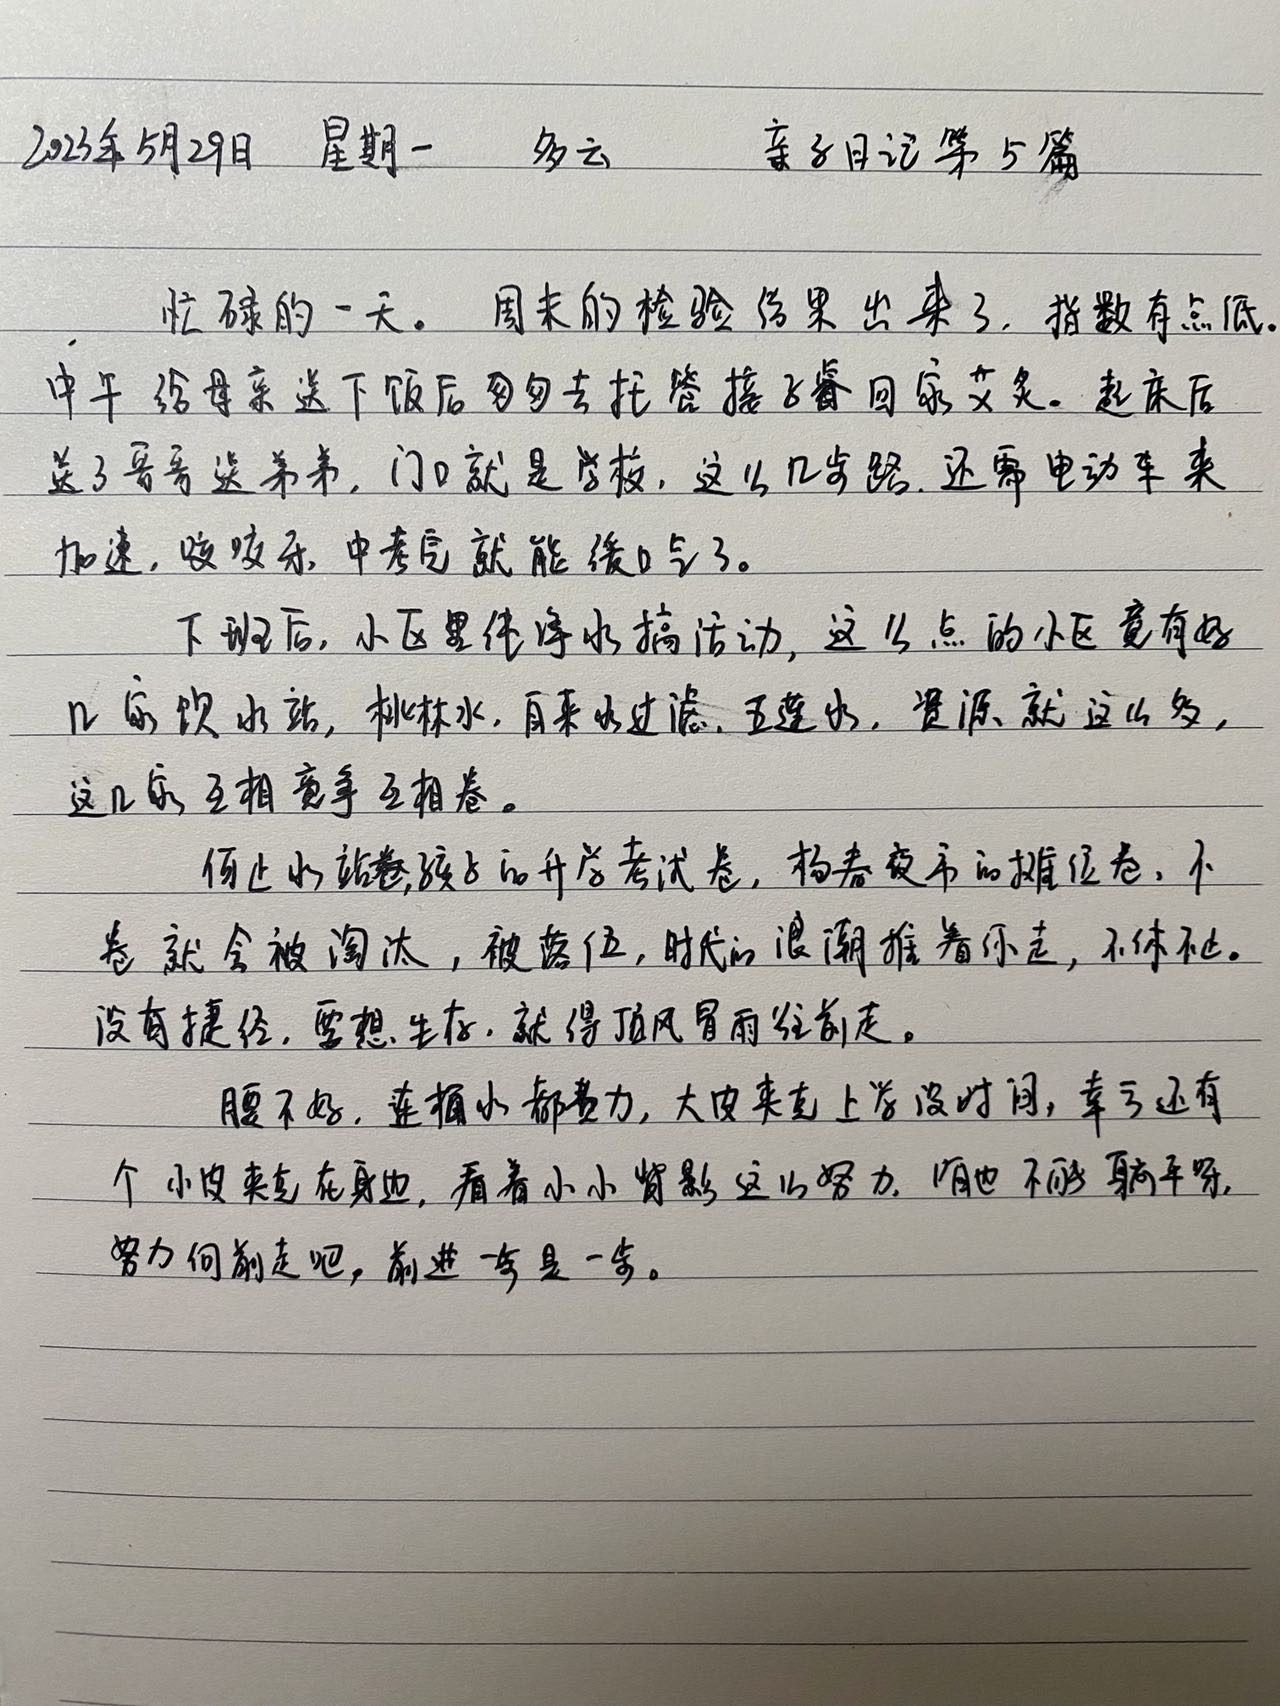 2023年5月29日 星期一 多云 亲子日记第5篇
忙碌的一天。周末的检验结果出来了，指数有点低。
中午给母亲送下饭后匆匆去托管接子睿回家艾炙。起床后
送了哥哥送弟弟，门口就是学校，这么几步路，还需电动车来
加速，咬咬牙，中考完就能缓口气了。
下班后，小区里佳净水搞活动，这么点的小区竟有好
几家饮水站，桃林水，自来水过滤，五莲水，资源就这么多，
这几家互相竞争互相卷。
何止水站卷，孩子的升学考试卷，杨春夜市的摊位卷，不
卷就会被淘汰，被落伍，时代的浪潮推着你走，不休不止。
没有捷径，要想生存，就得顶风冒雨往前走。
腰不好，连桶水都费力，大皮夹克上学没时间，幸亏还有
个小皮夹克在身边，看着小小背影这么努力，咱也不能躺平呀，
努力向前走吧，前进一步是一步。